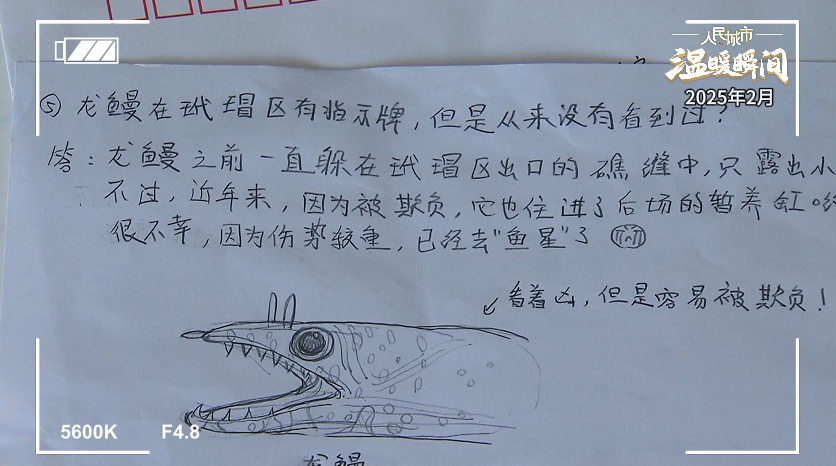 人民城市
温暖瞬间
2025年2月
⑤ 龙鳗在玳瑁区有指示牌，但是从来没有看到过？
答：龙鳗之前一直躲在玳瑁区出口的礁缝中，只露出小
不过，近年来，因为被欺负，它也住进了后场的暂养缸
很不幸，因为伤势较重，已经去“鱼星”了
看着凶，但是容易被欺负！
龙鳗
5600K F4.8